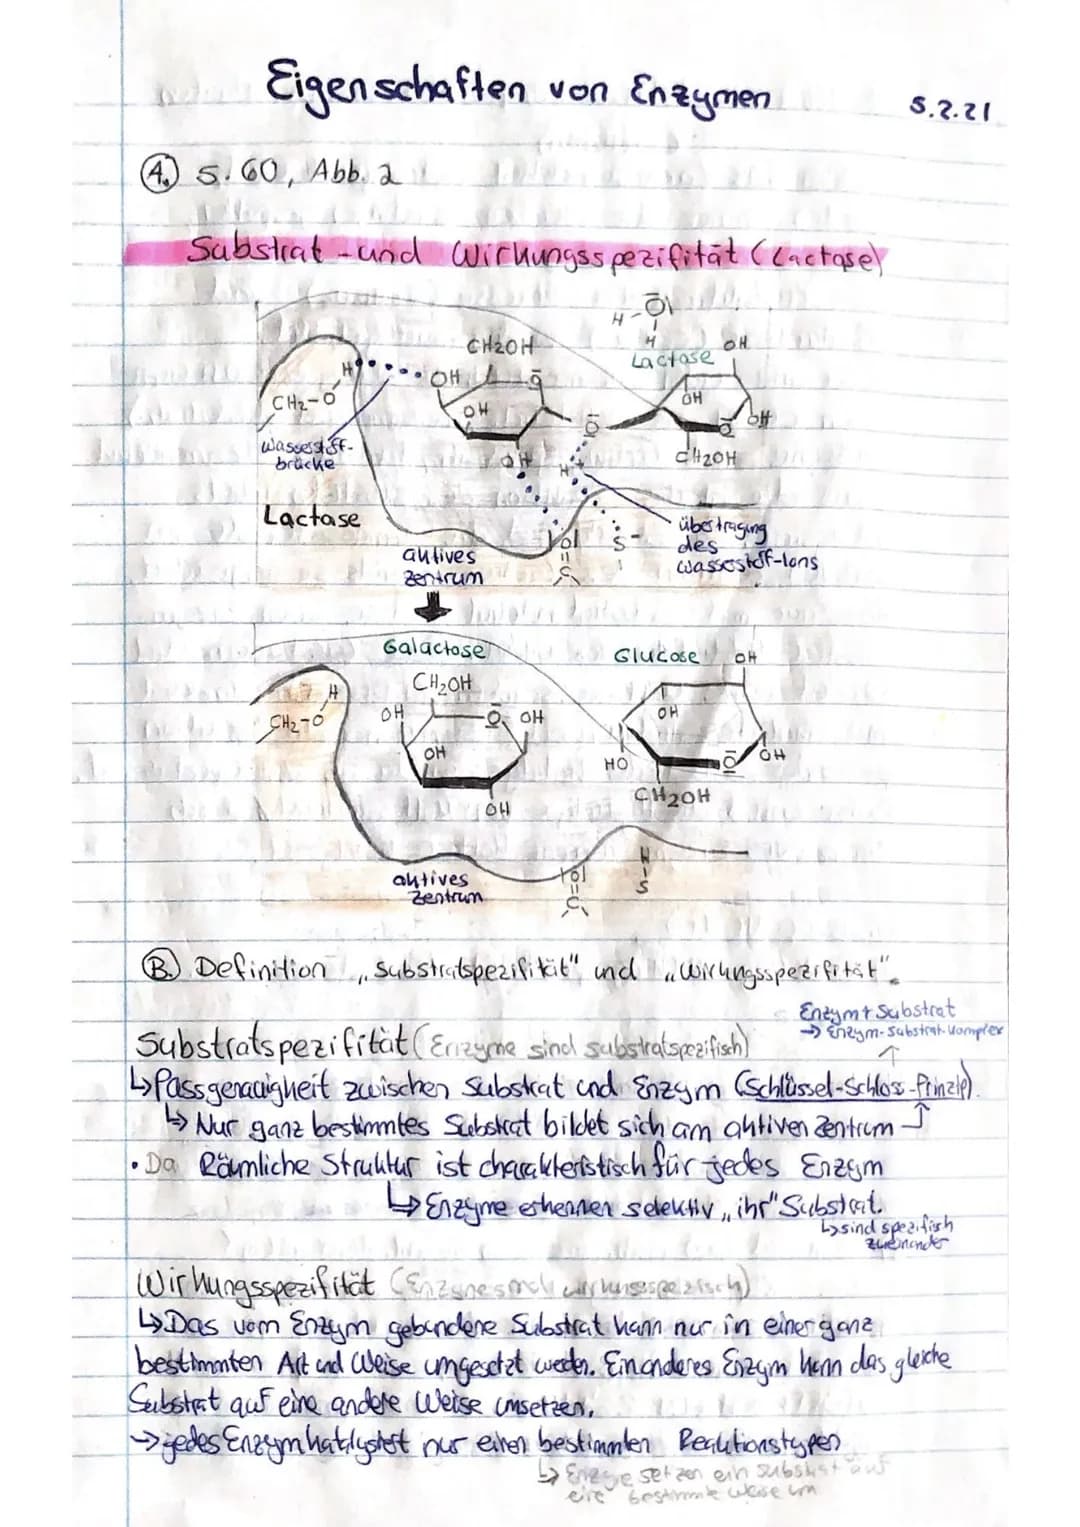 Eigenschaften von Enzymen
5.2.21
A. S. 60, Abb. 2
Substrat - und Wirkungsspezifität (Lactase)
H-O
H
CH2OH
Lactose
OH
H
OH
O
OH
CH2-O
OH
O
OH
O
Wasserstoff-
brücke
OH
H+
CH2OH
Lactase
Übertragung
des
Wasserstoff-Ions
aktives
Zentrum
O
C
S-
Galactose
Glucose
OH
H
CH2OH
CH2-O
OH
O
OH
OH
OH
HO
O
OH
OH
CH2OH
aktives
Zentrum
O
C
H
S
B. Definition „Substratspezifität" und „Wirkungsspezifität".
Enzym + Substrat
→ Enzym-Substrat-Komplex
Substratspezifität (Enzyme sind substratspezifisch)
↳ Passgenauigheit zwischen Substrat und Enzym (Schlüssel-Schloss-Prinzip)
↳ Nur ganz bestimmtes Substrat bildet sich am aktiven Zentrum
• Da Räumliche Struktur ist charakteristisch für jedes Enzym
↳ Enzyme erkennen selektiv „ihr" Substrat.
↳ sind spezifisch
zueinander
Wirkungsspezifität (Enzyme sind wirkungsspezifisch)
↳ Das vom Enzym gebundene Substrat kann nur in einer ganz
bestimmten Art und Weise umgesetzt werden. Ein anderes Enzym kann das gleiche
Substrat auf eine andere Weise umsetzen.
→ jedes Enzym katalysiert nur einen bestimmten Reaktionstypen
↳ Enzyme setzen ein Substrat auf
eine bestimmte Weise um